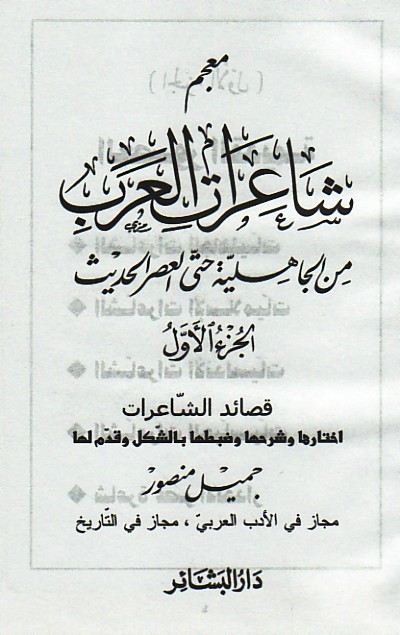 معجم
شَاعِرَات العَرَب
مِن الجَاهِليّة حَتّى العصر الحَديث
الجُزءُ الأَوَّلُ
قصائد الشّاعرات
اختارها وشرحها وضبطها بالشّكل وقدّم لها
جميل منصور
مجاز في الأدب العربيّ ، مجاز في التّاريخ
دَارُ البَشَائِر